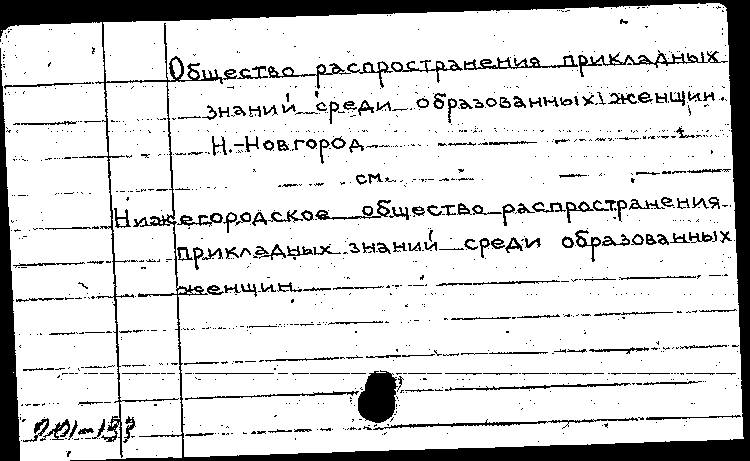 Общество распространения прикладных
знаний среди образованных женщин.
Н.-Новгород
см.
Нижегородское общество распространения
прикладных знаний среди образованных
женщин